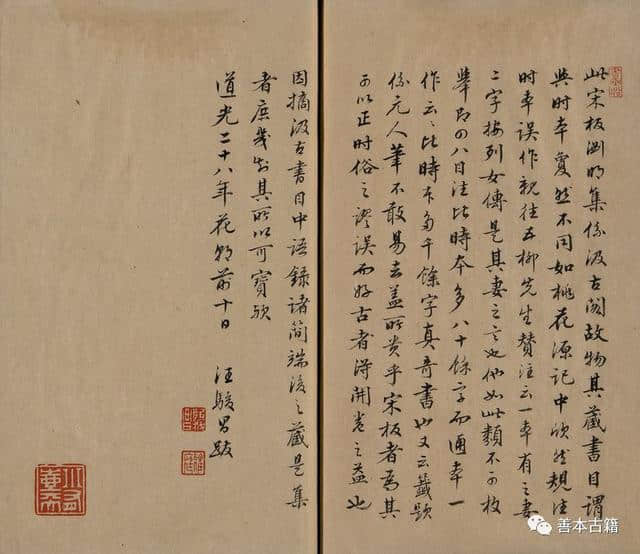 此宋板渊明集係汲古阁故物其藏書目謂
與时本夐然不同如桃花源記中欣然規注
时本误作親往五柳先生赞注云一本有之妻
二字按列女傳是其妻之言也他如此類不可枚
舉即四八目注比時本多八十餘字而通本一
作云云比時本多千餘字真奇書也又云籤题
係元人筆不敢易去盖所贵乎宋板者為其
可以正时俗之謬误而好古者得開卷之益也
因摘汲古書目中语録诸简端後之藏是集
者庶幾知其所以可寶欤
道光二十八年花朝前十日 汪駿昌跋
善本古籍